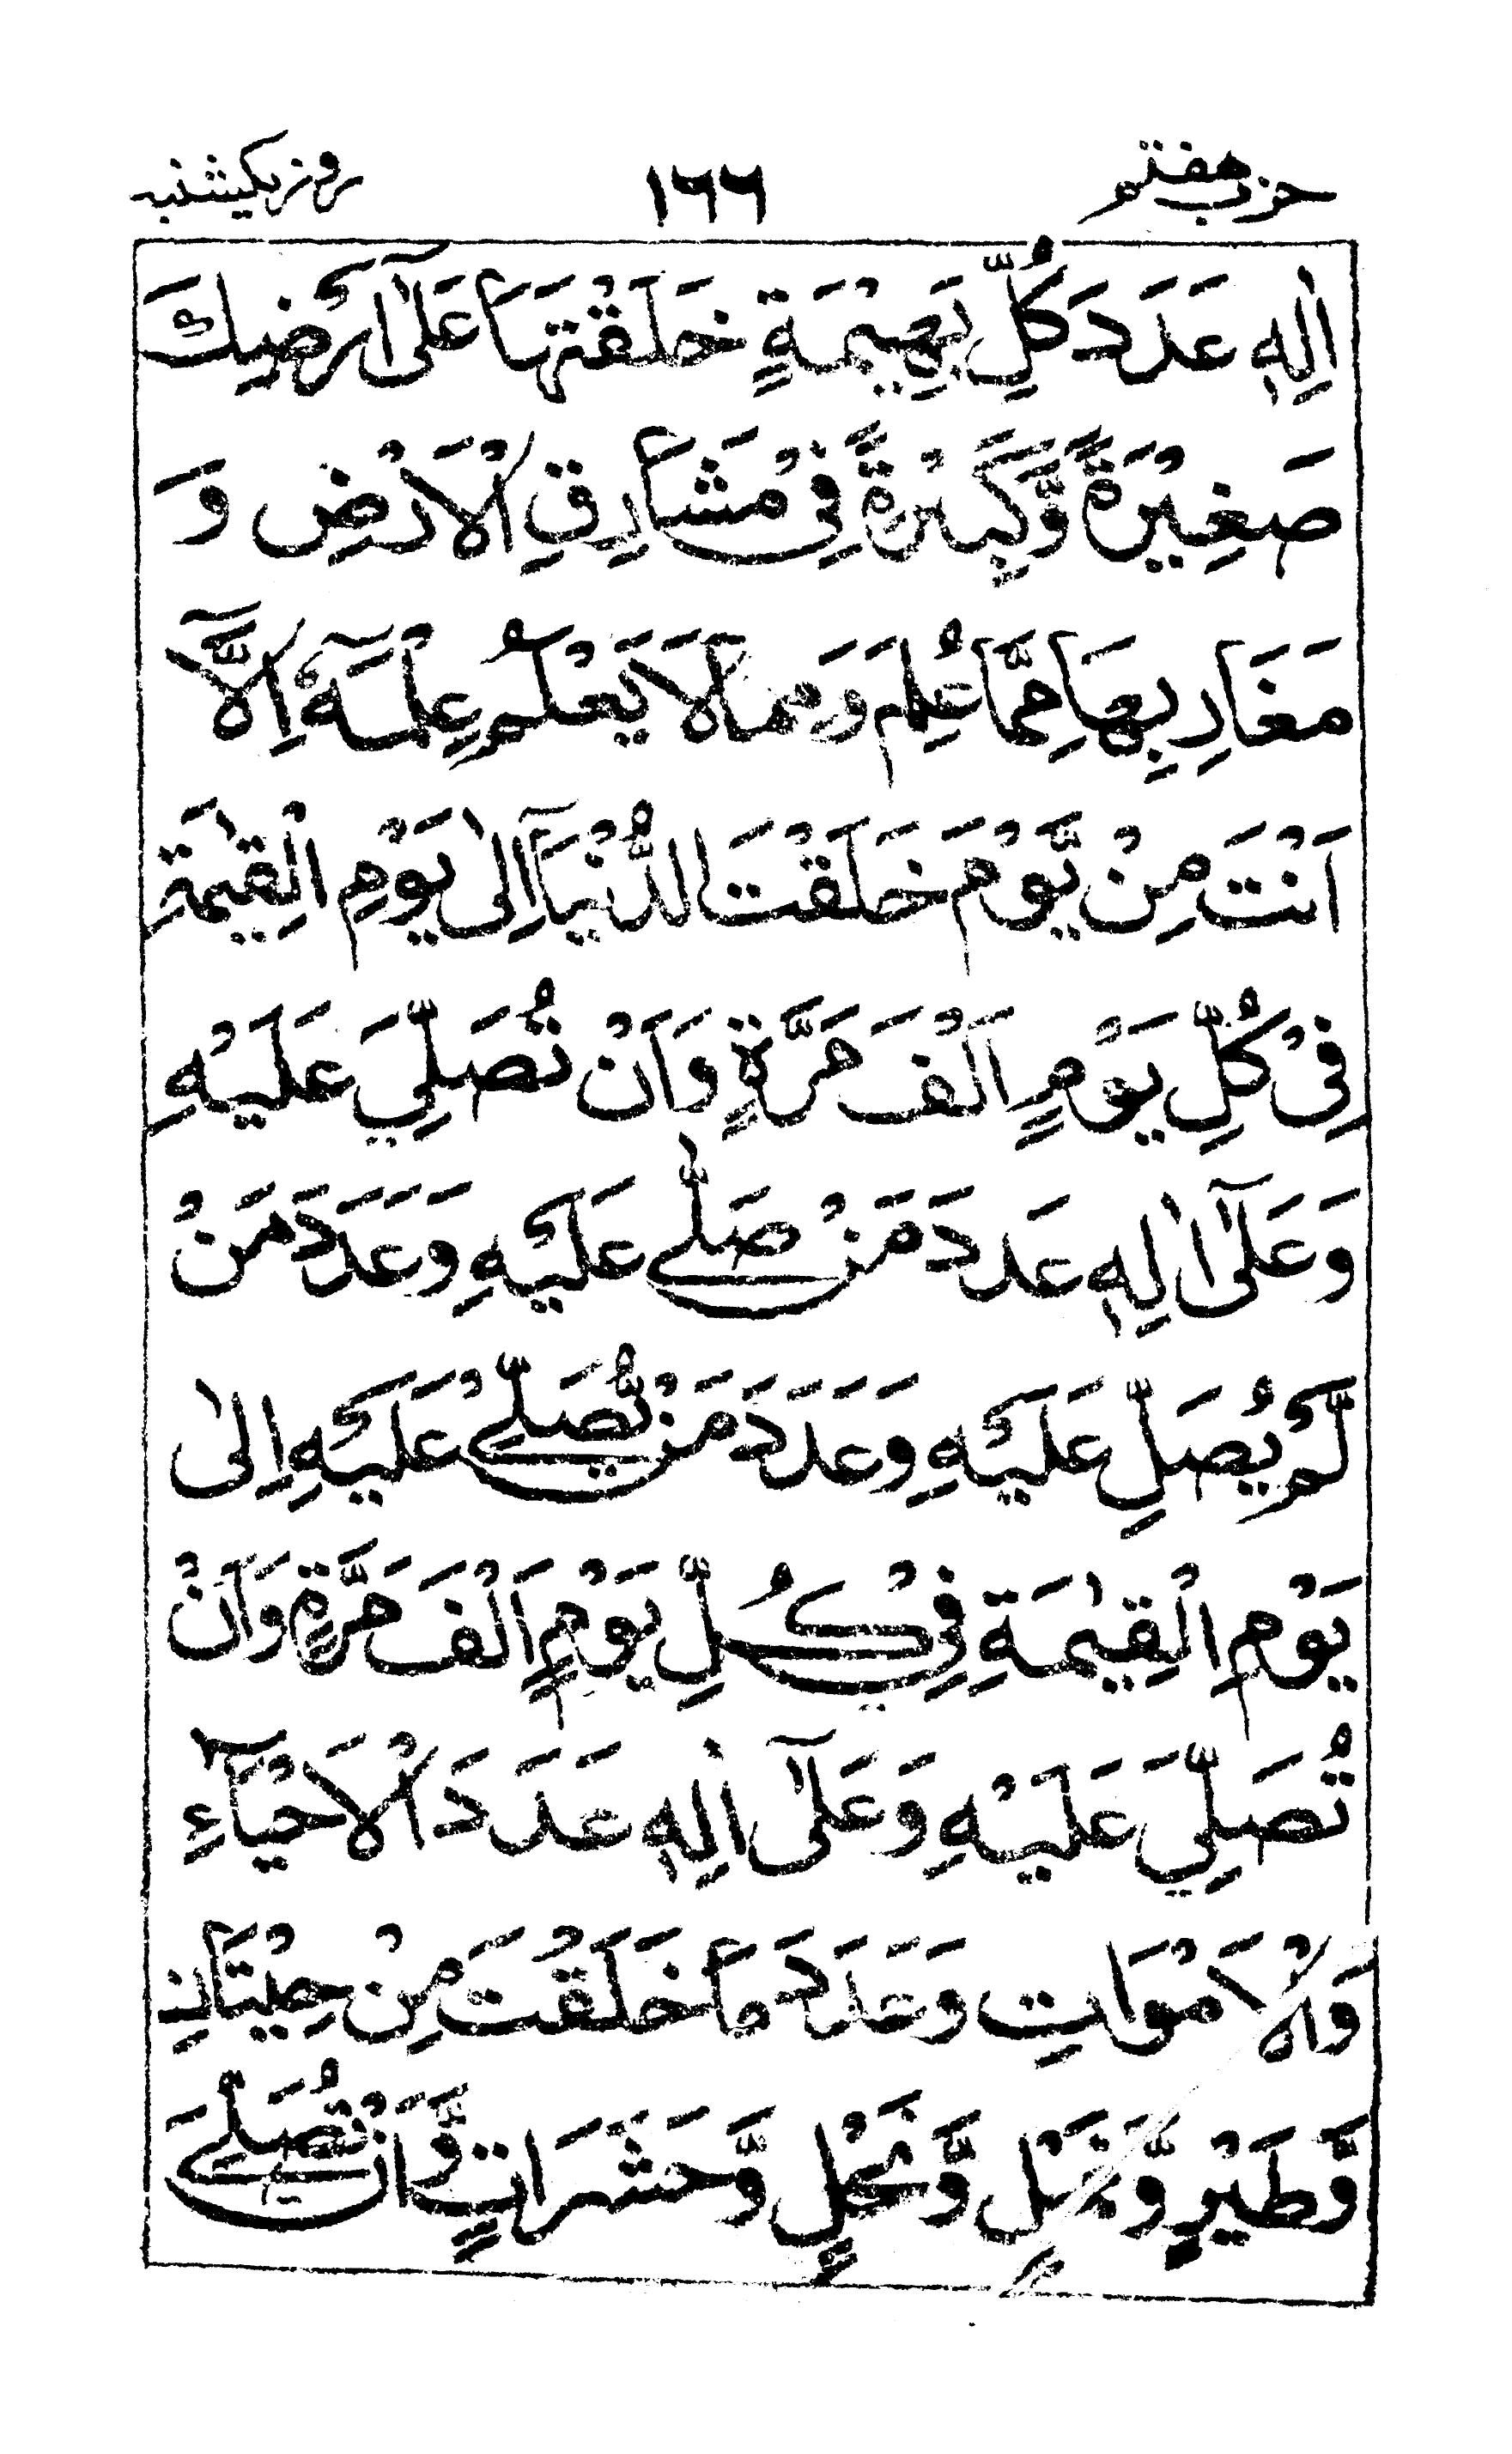 حزب هفتم ١٦٦ روز یکشنبہ
اٰلِهٖ عَدَدَ كُلِّ بَهِيْمَةٍ خَلَقْتَهَا عَلٰٓى اَرْضِكَ
صَغِيْرَةً وَّكَبِيْرَةً فِىْ مَشَارِقِ الْاَرْضِ وَ
مَغَارِبِهَا مِمَّا عُلِمَ وَمِمَّا لَا يَعْلَمُ عِلْمَهٗٓ اِلَّآ
اَنْتَ مِنْ يَّوْمَ خَلَقْتَ الدُّنْيَآ اِلٰى يَوْمِ الْقِيٰمَةِ
فِىْ كُلِّ يَوْمٍ اَلْفَ مَرَّةٍ وَاَنْ تُصَلِّيَ عَلَيْهِ
وَعَلٰٓى اٰلِهٖ عَدَدَ مَنْ صَلّٰى عَلَيْهِ وَعَدَدَ مَنْ
لَّمْ يُصَلِّ عَلَيْهِ وَعَدَدَ مَنْ يُّصَلِّىْ عَلَيْهِ اِلٰى
يَوْمِ الْقِيٰمَةِ فِىْ كُلِّ يَوْمٍ اَلْفَ مَرَّةٍ وَاَنْ
تُصَلِّيَ عَلَيْهِ وَعَلٰٓى اٰلِهٖ عَدَدَ الْاَحْيَآءِ
وَالْاَمْوَاتِ وَعَدَدَ مَا خَلَقْتَ مِنْ حِيْتَانٍ
وَّطَيْرٍ وَّنَمْلٍ وَّنَحْلٍ وَّحَشَرَاتٍ وَّاَنْ تُصَلِّيَ